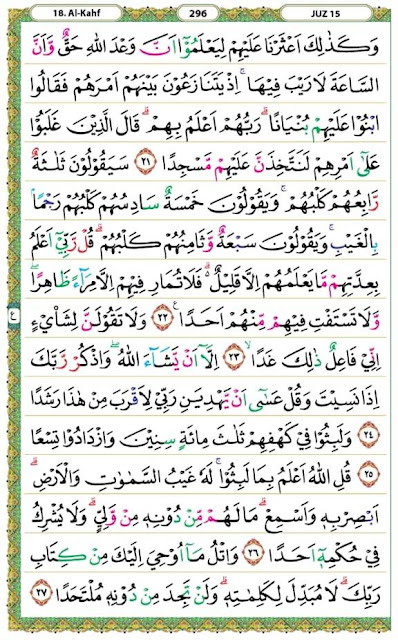 18. Al-Kahf 296 JUZ 15
وَكَذٰلِكَ اَعْثَرْنَا عَلَيْهِمْ لِيَعْلَمُوْٓا اَنَّ وَعْدَ اللّٰهِ حَقٌّ وَّاَنَّ
السَّاعَةَ لَا رَيْبَ فِيْهَاۚ اِذْ يَتَنَازَعُوْنَ بَيْنَهُمْ اَمْرَهُمْ فَقَالُوا
ابْنُوْا عَلَيْهِمْ بُنْيَانًاۗ رَبُّهُمْ اَعْلَمُ بِهِمْۗ قَالَ الَّذِيْنَ غَلَبُوْا
عَلٰٓى اَمْرِهِمْ لَنَتَّخِذَنَّ عَلَيْهِمْ مَّسْجِدًا ٢١ سَيَقُوْلُوْنَ ثَلٰثَةٌ
رَّابِعُهُمْ كَلْبُهُمْۚ وَيَقُوْلُوْنَ خَمْسَةٌ سَادِسُهُمْ كَلْبُهُمْ رَجْمًاۢ
بِالْغَيْبِۚ وَيَقُوْلُوْنَ سَبْعَةٌ وَّثَامِنُهُمْ كَلْبُهُمْۗ قُلْ رَّبِّيْٓ اَعْلَمُ
بِعِدَّتِهِمْ مَّا يَعْلَمُهُمْ اِلَّا قَلِيْلٌۗ فَلَا تُمَارِ فِيْهِمْ اِلَّا مِرَاۤءً ظَاهِرًاۖ
وَّلَا تَسْتَفْتِ فِيْهِمْ مِّنْهُمْ اَحَدًا ٢٢ ع وَلَا تَقُوْلَنَّ لِشَا۟يْءٍ
اِنِّيْ فَاعِلٌ ذٰلِكَ غَدًا ٢٣ اِلَّآ اَنْ يَّشَاۤءَ اللّٰهُۖ وَاذْكُرْ رَّبَّكَ
اِذَا نَسِيْتَ وَقُلْ عَسٰٓى اَنْ يَّهْدِيَنِ رَبِّيْ لِاَقْرَبَ مِنْ هٰذَا رَشَدًا
٢٤ وَلَبِثُوْا فِيْ كَهْفِهِمْ ثَلٰثَ مِائَةٍ سِنِيْنَ وَازْدَادُوْا تِسْعًا
٢٥ قُلِ اللّٰهُ اَعْلَمُ بِمَا لَبِثُوْاۚ لَهٗ غَيْبُ السَّمٰوٰتِ وَالْاَرْضِۗ
اَبْصِرْ بِهٖ وَاَسْمِعْۗ مَا لَهُمْ مِّنْ دُوْنِهٖ مِنْ وَّلِيٍّۗ وَلَا يُشْرِكُ
فِيْ حُكْمِهٖٓ اَحَدًا ٢٦ وَاتْلُ مَآ اُوْحِيَ اِلَيْكَ مِنْ كِتَابِ
رَبِّكَۗ لَا مُبَدِّلَ لِكَلِمٰتِهٖۗ وَلَنْ تَجِدَ مِنْ دُوْنِهٖ مُلْتَحَدًا ٢٧